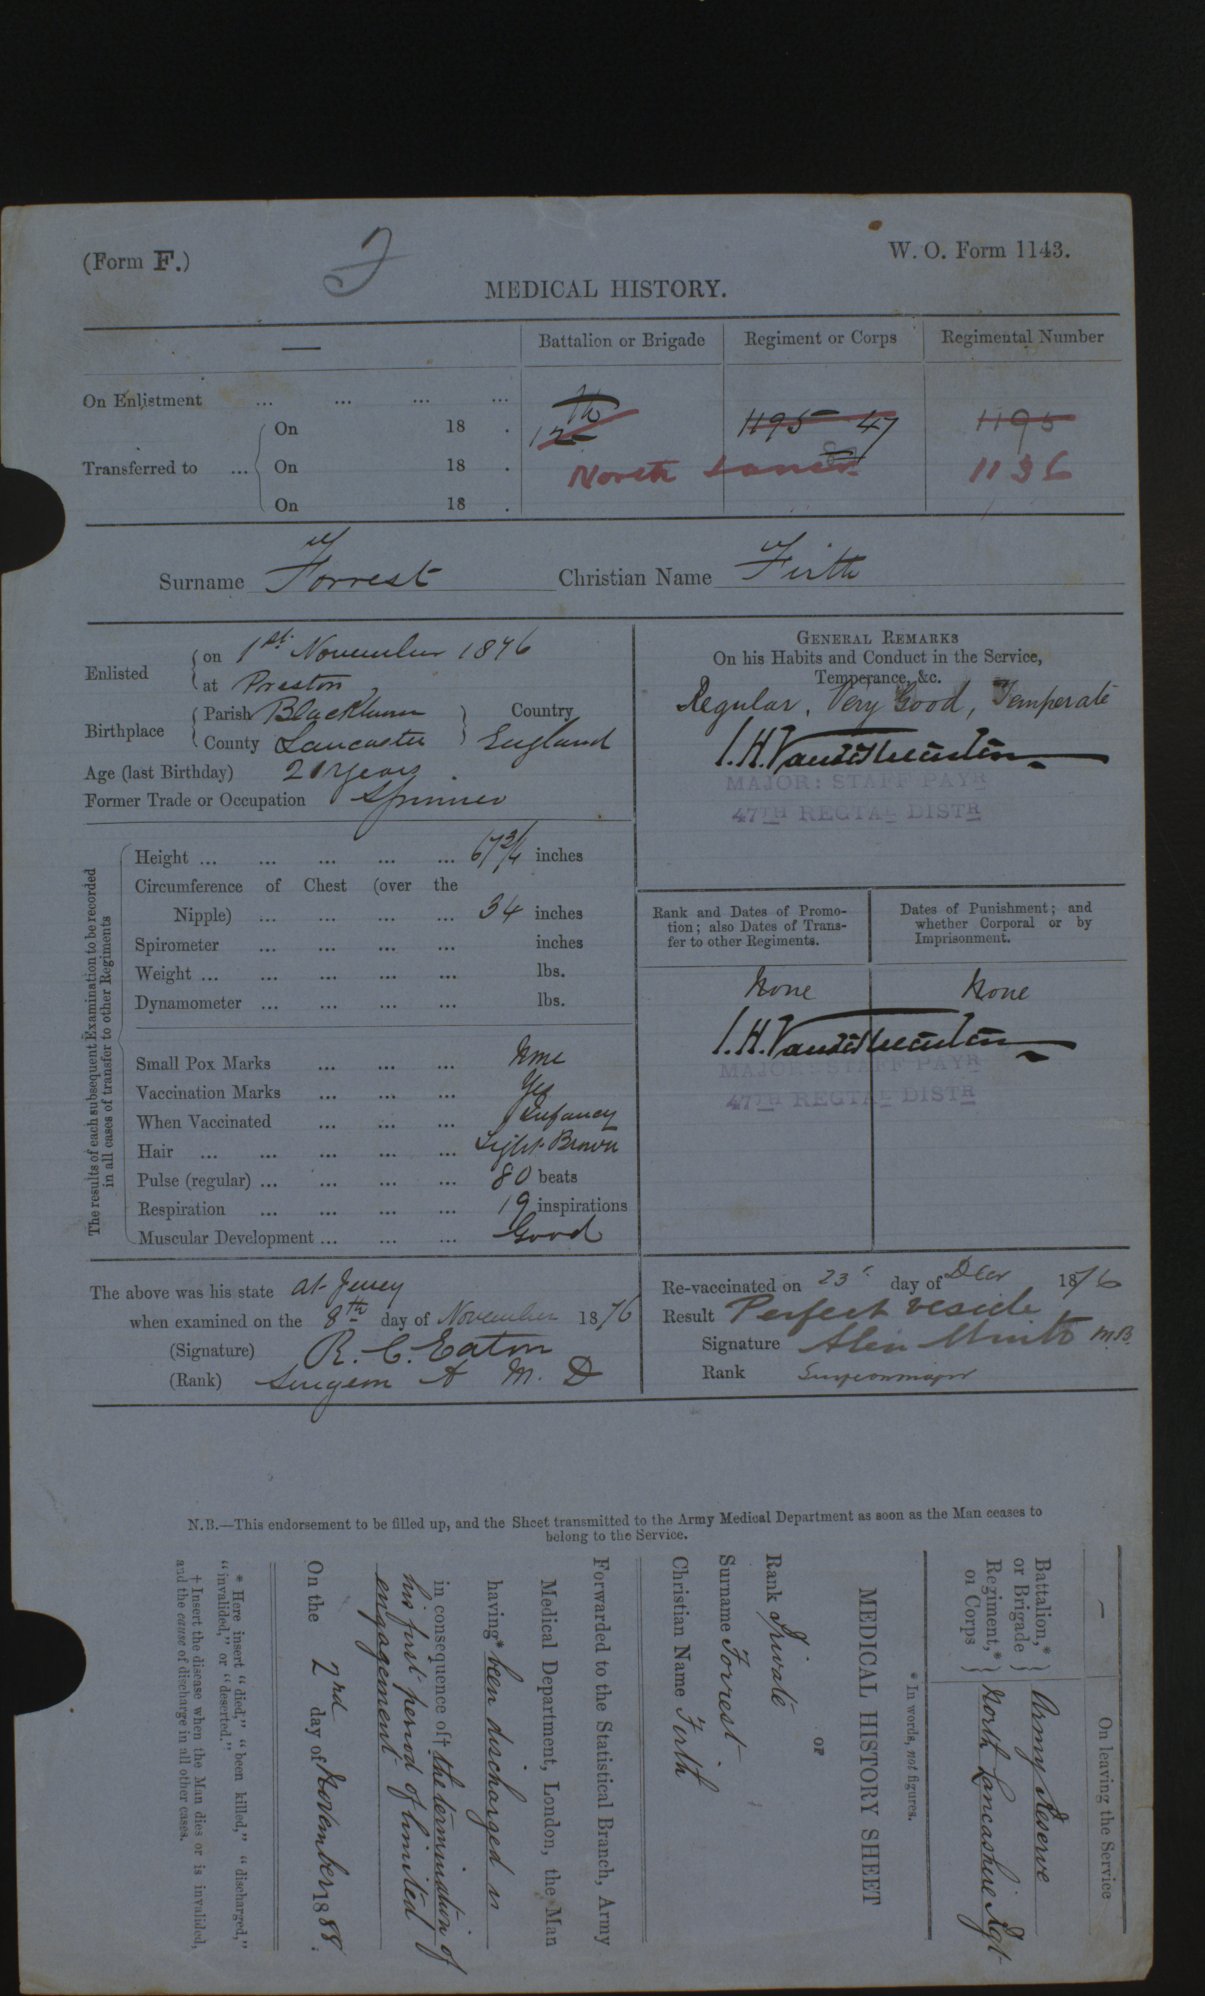 (Form F.)
W. O. Form 1143.
MEDICAL HISTORY.
Battalion or Brigade
Regiment or Corps
Regimental Number
On Enlistment ... ... ... ...
1195 47
1195
Transferred to ...
On 18 .
On 18 .
On 18 .
North Lancr.
1136
Surname Forrest Christian Name Firth
Enlisted
on 1st November 1876
at Preston
Birthplace
Parish Blackburn
County Lancaster
Country
England
Age (last Birthday) 20 years .
Former Trade or Occupation Spinner
GENERAL REMARKS
On his Habits and Conduct in the Service,
Temperance, &c.
Regular, Very Good, Temperate
MAJOR: STAFF PAYR
47TH REGTAL DISTR
The results of each subsequent Examination to be recorded
in all cases of transfer to other Regiments
Height ... ... ... ... 67 3/4 inches
Circumference of Chest (over the
Nipple) ... ... ... ... 34 inches
Spirometer ... ... ... ... inches
Weight ... ... ... ... ... lbs.
Dynamometer ... ... ... ... lbs.
Small Pox Marks ... ... ... None
Vaccination Marks ... ... ... Yes
When Vaccinated ... ... ... Infancy
Hair ... ... ... ... ... Light Brown
Pulse (regular) ... ... ... ... 80 beats
Respiration ... ... ... ... 19 inspirations
Muscular Development ... ... ... Good
Rank and Dates of Promo-
tion; also Dates of Trans-
fer to other Regiments.
Dates of Punishment; and
whether Corporal or by
Imprisonment.
None
None
MAJOR: STAFF PAYR
47TH REGTAL DISTR
The above was his state at Jersey
when examined on the 8th day of November 1876
(Signature) R. C. Eaton
(Rank) Surgeon A M. D
Re-vaccinated on 23 day of Decr 1876
Result Perfect vesicle
Signature Alex Smith M.B.
Rank Surgeon major
N.B.—This endorsement to be filled up, and the Sheet transmitted to the Army Medical Department as soon as the Man ceases to
belong to the Service.
On leaving the Service
Battalion,*
or Brigade
Army Reserve
Regiment,*
or Corps
North Lancashire Regt
* In words, not figures.
MEDICAL HISTORY SHEET
OF
Rank Private
Surname Forrest
Christian Name Firth
Forwarded to the Statistical Branch, Army
Medical Department, London, the Man
having* been discharged in
in consequence of† the termination of
his first period of limited
engagement
On the 2nd day of November 1888.
* Here insert "died," "been killed," "discharged,"
"invalided," or "deserted."
† Insert the disease when the Man dies or is invalided,
and the cause of discharge in all other cases.